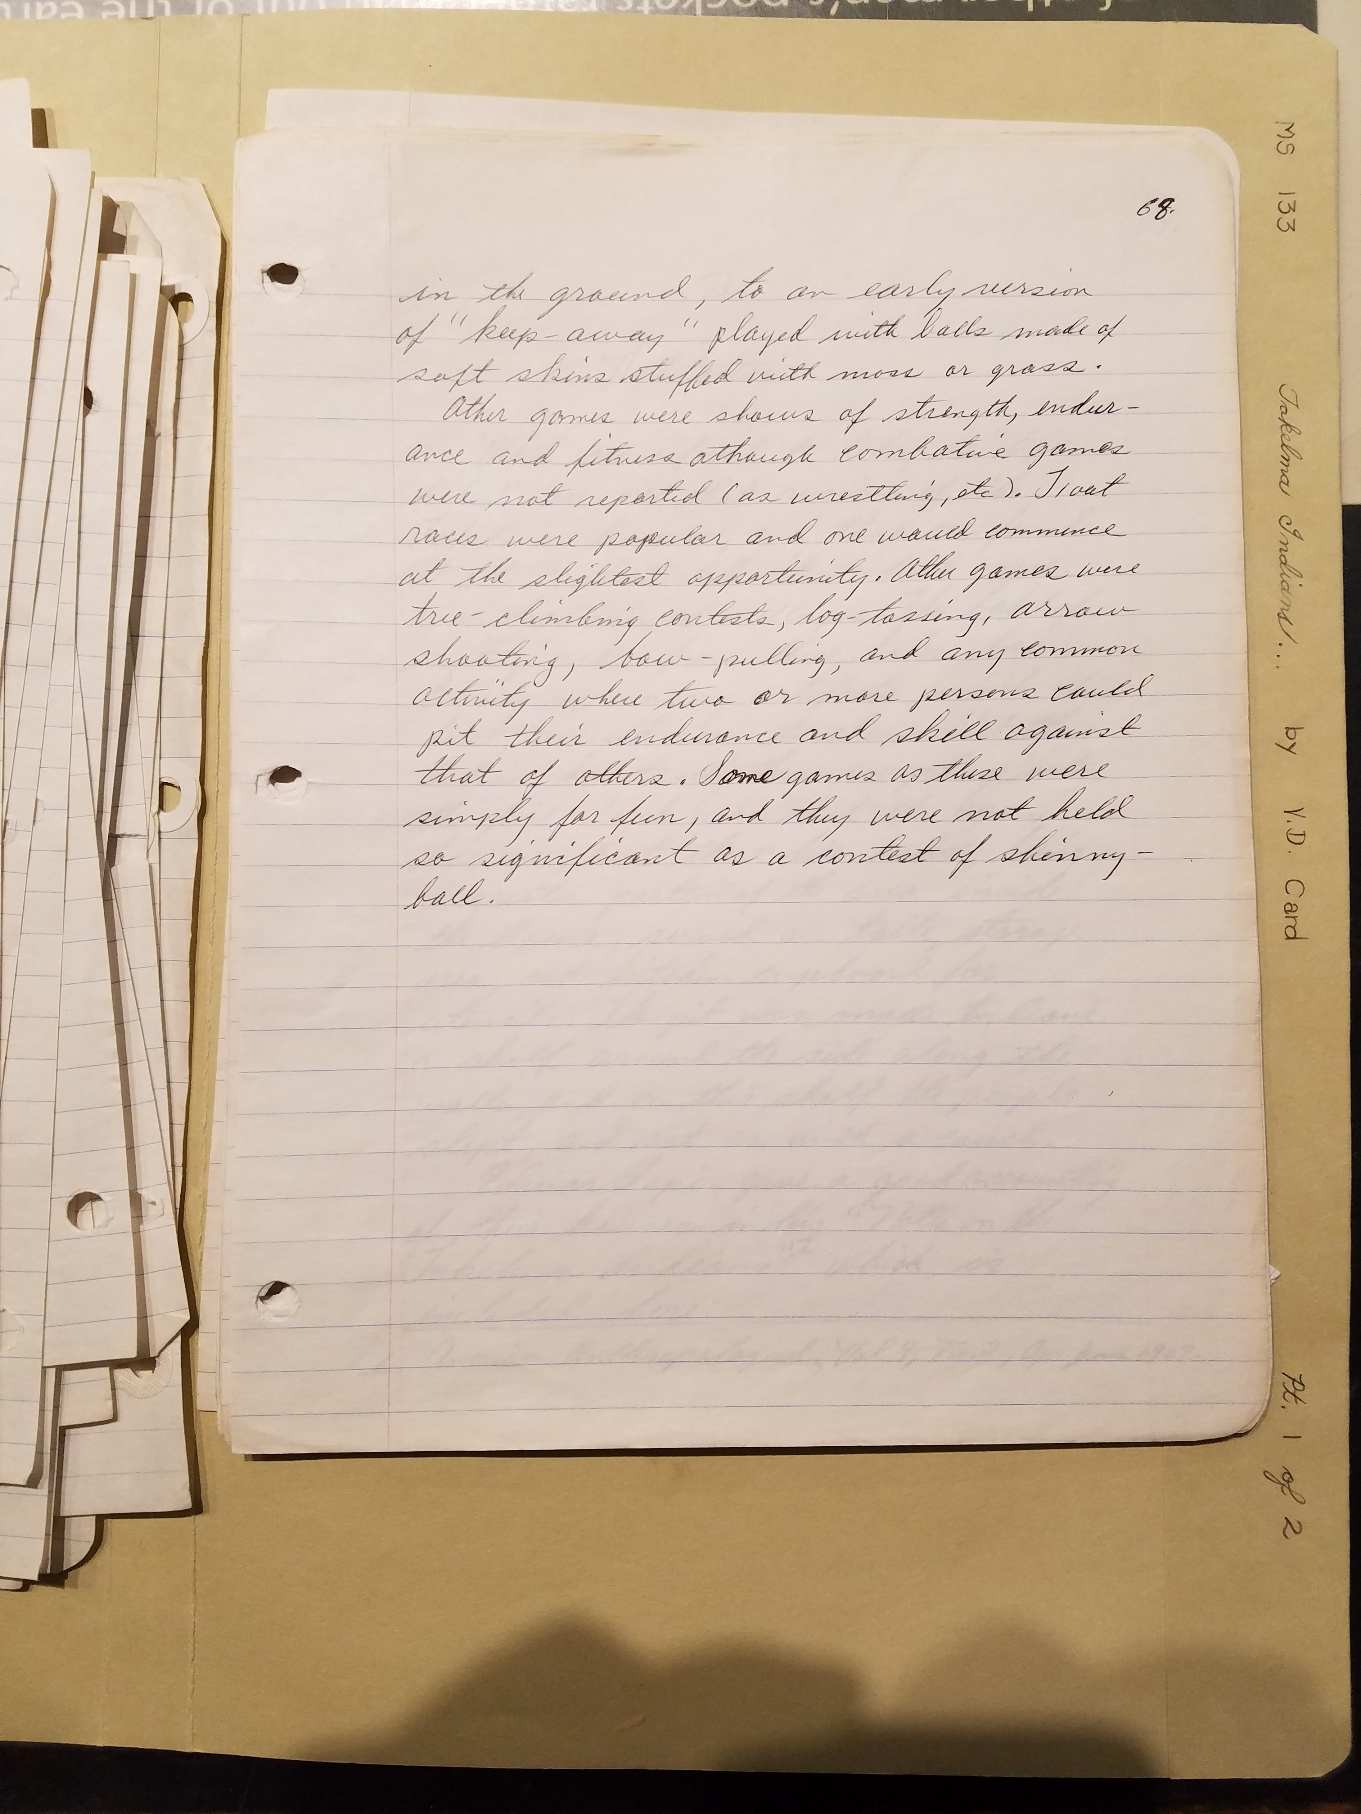 68.
in the ground, to an early version
of "keep-away" played with balls made of
soft skins stuffed with moss or grass.
Other games were shows of strength, endur-
ance and fitness athough combative games
were not reported (as wrestling, etc). Foot
races were popular and one would commence
at the slightest opportunity. Other games were
tree-climbing contests, log-tossing, arrow
shooting, bow-pulling, and any common
activity where two or more persons could
pit their endurance and skill against
that of others. Some games as these were
simply for fun, and they were not held
so significant as a contest of shinny-
ball.
MS 133 Takelma Indians!... by Y.D. Card Pt. 1 of 2